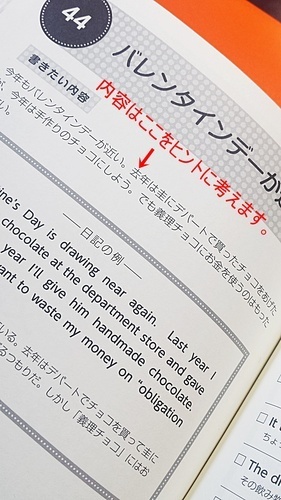 44
バレンタインデーが
書きたい内容
内容はここをヒントに考えます。
今年もバレンタインデーが近い。去年は圭にデパートで買ったチョコをあげた
が、今年は手作りのチョコにしよう。でも義理チョコにお金を使うのはもった
い。
日記の例
ine's Day is drawing near again. Last year I
chocolate at the department store and gave
year I'll give him handmade chocolate.
ant to waste my money on "obligation
いる。去年はデパートでチョコを買って圭に
るつもりだ。しかし「義理チョコ」にはお
It
ちょ
The di
その飲み